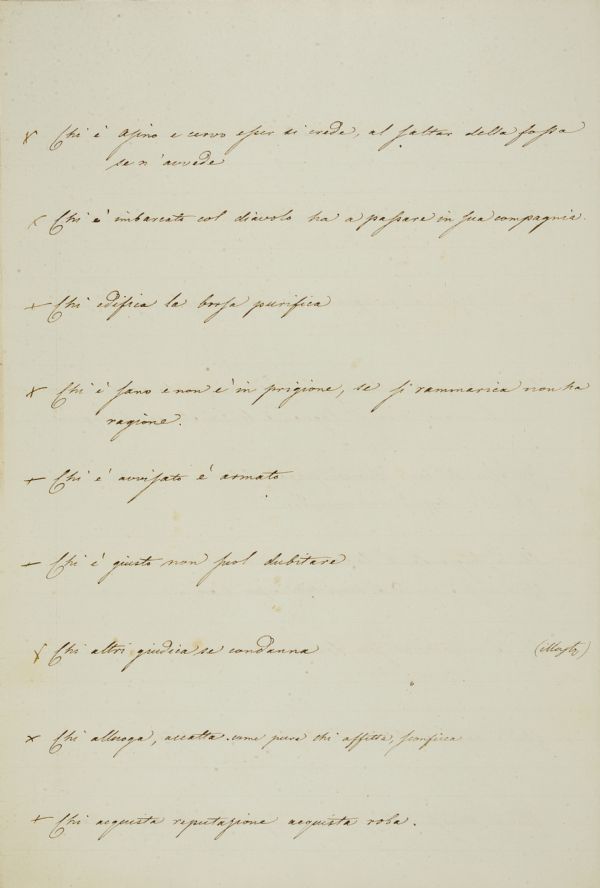 Chi è Asino e cervo esser si crede, al saltar della fossa
se n'avvede
Chi è imbarcato col diavolo ha a passare in sua compagnia.
Chi edifica la borsa purifica
Chi è sano e non è in prigione, se si rammarica non ha
ragione.
Chi è avvisato è armato
Chi è giusto non può dubitare
Chi altri giudica se condanna
Chi alluoga, accatta. come pure chi affitta, sconficca
Chi acquista reputazione acquista roba.